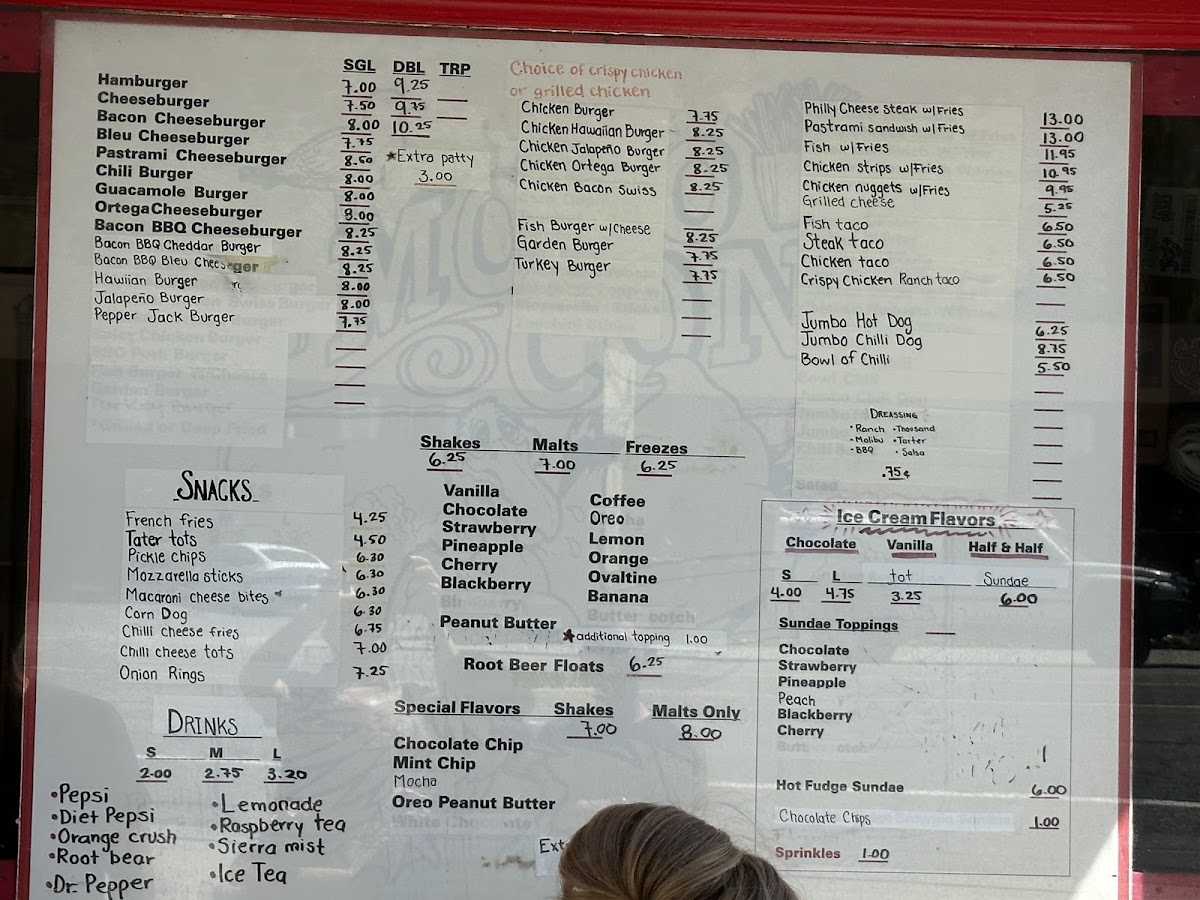 SGL DBL TRP
Hamburger 7.00 9.25
Cheeseburger 7.50 9.75
Bacon Cheeseburger 8.00 10.25
Bleu Cheeseburger 7.75
Pastrami Cheeseburger 8.50
Chili Burger 8.00
Guacamole Burger 8.00
Ortega Cheeseburger 8.00
Bacon BBQ Cheeseburger 8.25
Bacon BBQ Cheddar Burger 8.25
Bacon BBQ Bleu Cheeseger 8.25
Hawiian Burger 8.00
Jalapeño Burger 8.00
Pepper Jack Burger 7.75
★Extra patty
3.00
Choice of crispy chicken
or grilled chicken
Chicken Burger 7.75
Chicken Hawaiian Burger 8.25
Chicken Jalapeño Burger 8.25
Chicken Ortega Burger 8.25
Chicken Bacon Swiss 8.25
Fish Burger w/Cheese 8.25
Garden Burger 7.75
Turkey Burger 7.75
Philly Cheese steak w/Fries 13.00
Pastrami sandwish w/Fries 13.00
Fish w/Fries 11.95
Chicken strips w/Fries 10.95
Chicken nuggets w/Fries 9.95
Grilled cheese 5.25
Fish taco 6.50
Steak taco 6.50
Chicken taco 6.50
Crispy Chicken Ranch taco 6.50
Jumbo Hot Dog 6.25
Jumbo Chilli Dog 8.75
Bowl of Chilli 5.50
DREASSING
•Ranch •Thousand
•Malibu •Tarter
•BBQ •Salsa
.75¢
SNACKS
French fries 4.25
Tater tots 4.50
Pickle chips 6.30
Mozzarella sticks 6.30
Macaroni cheese bites 6.30
Corn Dog 6.30
Chilli cheese fries 6.75
Chilli cheese tots 7.00
Onion Rings 7.25
DRINKS
S M L
2.00 2.75 3.20
•Pepsi
•Diet Pepsi
•Orange crush
•Root bear
•Dr. Pepper
•Lemonade
•Raspberry tea
•Sierra mist
•Ice Tea
Shakes Malts Freezes
6.25 7.00 6.25
Vanilla
Chocolate
Strawberry
Pineapple
Cherry
Blackberry
Peanut Butter
Coffee
Oreo
Lemon
Orange
Ovaltine
Banana
★additional topping 1.00
Root Beer Floats 6.25
Special Flavors Shakes Malts Only
7.00 8.00
Chocolate Chip
Mint Chip
Mocha
Oreo Peanut Butter
Ext
Ice Cream Flavors
Chocolate Vanilla Half & Half
S L tot Sundae
4.00 4.75 3.25 6.00
Sundae Toppings
Chocolate
Strawberry
Pineapple
Peach
Blackberry
Cherry
Hot Fudge Sundae 6.00
Chocolate Chips 1.00
Sprinkles 1.00